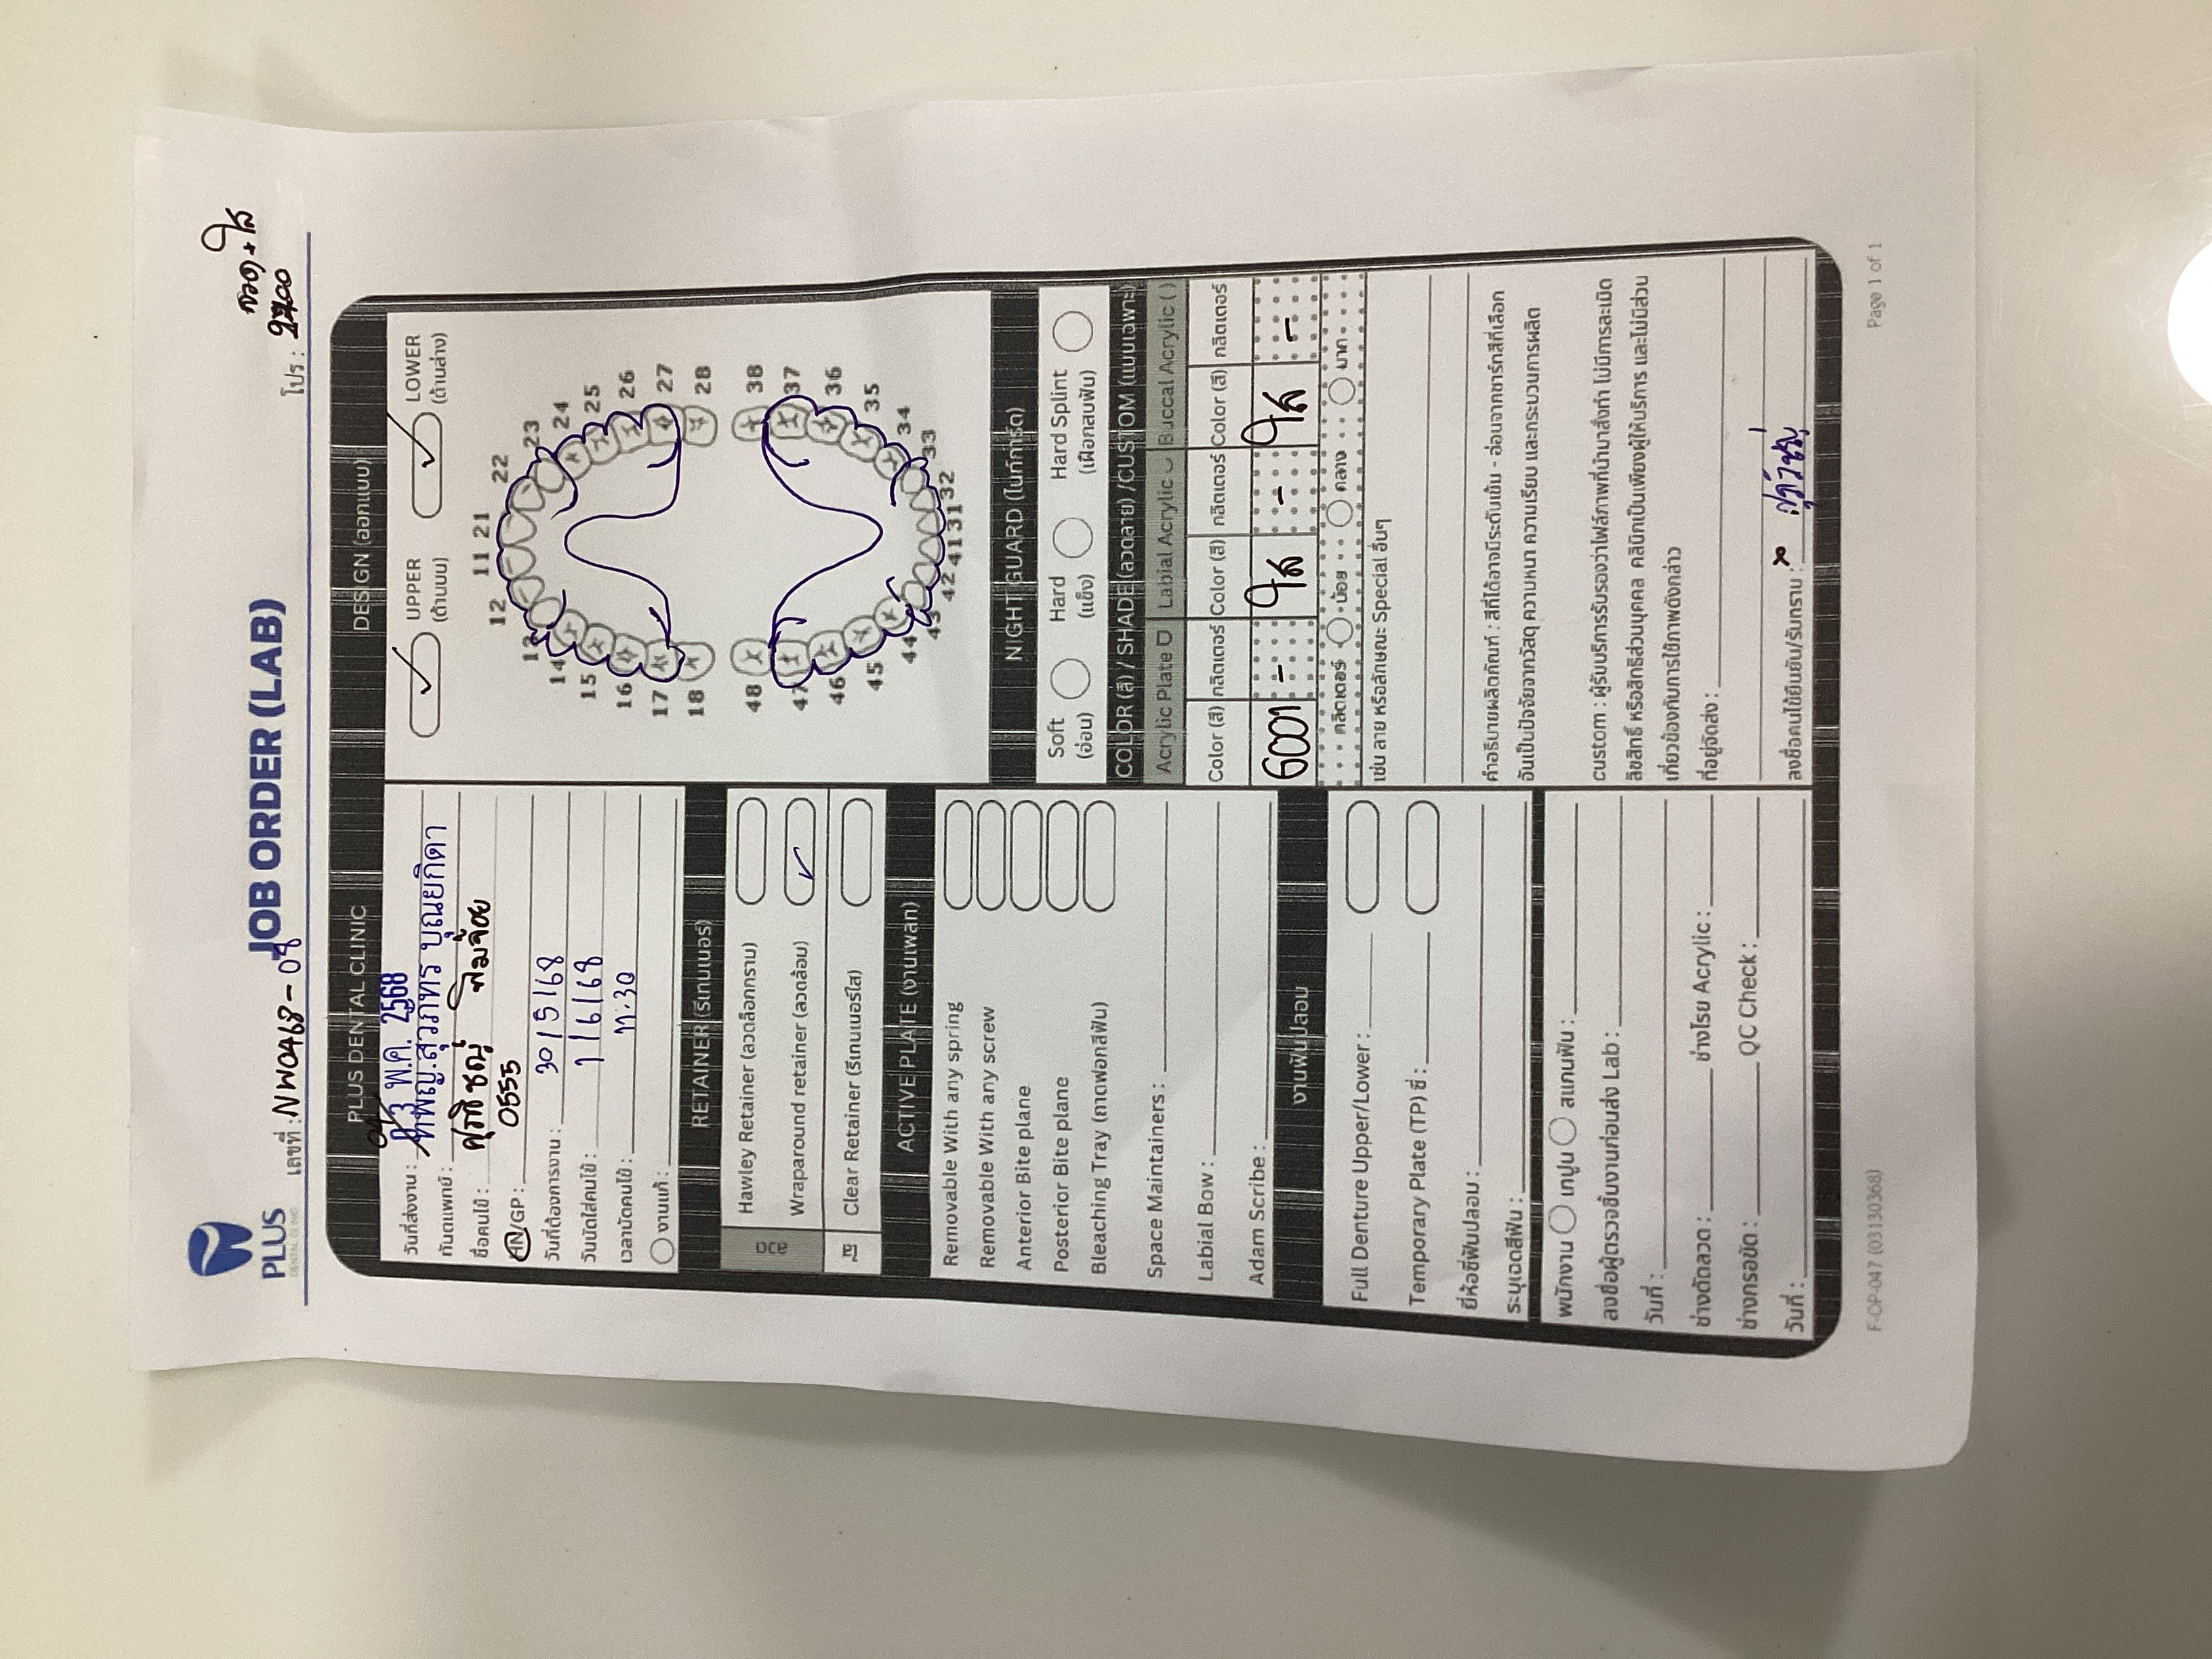 PLUS
DENTAL CLINIC
JOB ORDER (LAB)
ลวด+ใส
เลขที่ : NW0468-08
โปร :
PLUS DENTAL CLINIC
วันที่ส่งงาน : 04 03 พ.ค. 2568
ทันตแพทย์ : ทพญ.สุวภัทร บุณยกิดา
ชื่อคนไข้ : พิมจ้อย
HN/GP : 0555
วันที่ต้องการงาน : 30/5/68
วันนัดใส่คนไข้ : 1/6/68
เวลานัดคนไข้ : 11.30
งานแก้ :
RETAINER (รีเทนเนอร์)
ลวด
Hawley Retainer (ลวดล็อกกราม)
Wraparound retainer (ลวดล้อม)
ใส
Clear Retainer (รีเทนเนอร์ใส)
ACTIVE PLATE (งานเพลท)
Removable With any spring
Removable With any screw
Anterior Bite plane
Posterior Bite plane
Bleaching Tray (ถาดฟอกสีฟัน)
Space Maintainers :
Labial Bow :
Adam Scribe :
งานฟันปลอม
Full Denture Upper/Lower :
Temporary Plate (TP) ซี่ :
ยี่ห้อซี่ฟันปลอม :
ระบุเฉดสีฟัน :
พนักงาน เทปูน สแกนฟัน :
ลงชื่อผู้ตรวจชิ้นงานก่อนส่ง Lab :
วันที่ :
ช่างดัดลวด : ช่างโรย Acrylic :
ช่างกรอขัด : QC Check :
วันที่ :
DESIGN (ออกแบบ)
UPPER
(ด้านบน)
LOWER
(ด้านล่าง)
11 21
12 22
13 23
14 24
15 25
16 26
17 27
18 28
48 38
47 37
46 36
45 35
44 34
43 33
42 41 31 32
NIGHT GUARD (ไนท์การ์ด)
Soft
(อ่อน)
Hard
(แข็ง)
Hard Splint
(เฝือกสบฟัน)
COLOR (สี) / SHADE (ลวดลาย) /CUSTOM (แบบเฉพาะ)
Acrylic Plate Labial Acrylic Buccal Acrylic ( )
Color (สี) กลิตเตอร์ Color (สี) กลิตเตอร์ Color (สี) กลิตเตอร์
6001 - ใส - ใส -
กลิตเตอร์ น้อย กลาง มาก
เช่น ลาย หรือลักษณะ Special อื่นๆ
คำอธิบายผลิตภัณฑ์ : สีที่ได้อาจมีระดับเข้ม - อ่อนจากชาร์ทสีที่เลือก
อันเป็นปัจจัยจากวัสดุ ความหนา ความเรียบ และกระบวนการผลิต
custom : ผู้รับบริการรับรองว่าไฟล์ภาพที่นำมาสั่งทำ ไม่มีการละเมิด
ลิขสิทธิ์ หรือสิทธิส่วนบุคคล คลินิกเป็นเพียงผู้ให้บริการ และไม่มีส่วน
เกี่ยวข้องกับการใช้ภาพดังกล่าว
ที่อยู่จัดส่ง :
ลงชื่อคนไข้ยืนยัน/รับทราบ :
F-OP-047 (03130368)
Page 1 of 1